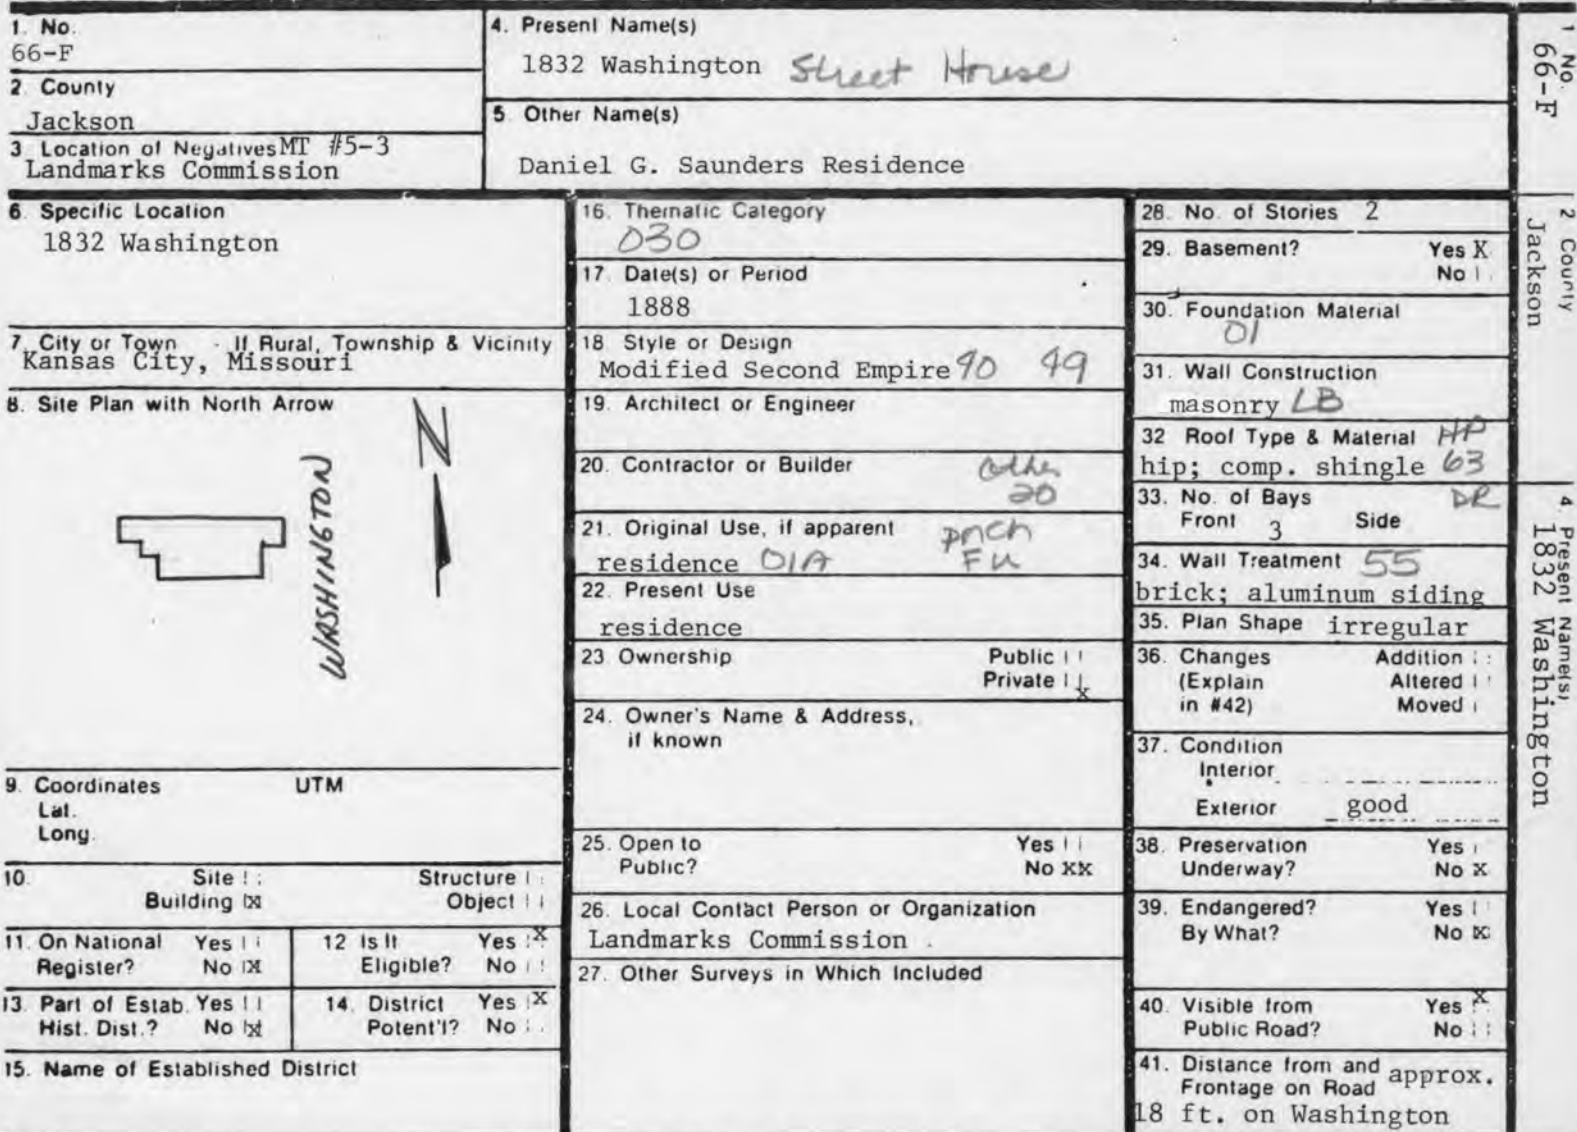 1. No.
66-F
2. County
Jackson
3 Location of Negatives MT #5-3
Landmarks Commission
4. Present Name(s)
1832 Washington Street House
5 Other Name(s)
Daniel G. Saunders Residence
6. Specific Location
1832 Washington
7. City or Town If Rural, Township & Vicinity
Kansas City, Missouri
8. Site Plan with North Arrow
N
WASHINGTON
9. Coordinates UTM
Lat.
Long.
10. Site Structure
Building X Object
11. On National Yes
Register? No X
12 Is It Yes X
Eligible? No
13. Part of Estab. Yes
Hist. Dist.? No X
14. District Yes X
Potent'l? No
15. Name of Established District
16. Thematic Category
030
17. Date(s) or Period
1888
18 Style or Design
Modified Second Empire 90 49
19. Architect or Engineer
20. Contractor or Builder other
20
21. Original Use, if apparent pnch
residence 01A FU
22. Present Use
residence
23 Ownership Public
Private X
24. Owner's Name & Address,
if known
25. Open to Yes
Public? No XX
26. Local Contact Person or Organization
Landmarks Commission
27. Other Surveys in Which Included
28. No. of Stories 2
29. Basement? Yes X
No
30. Foundation Material
01
31. Wall Construction
masonry LB
32 Roof Type & Material HP
hip; comp. shingle 63
33. No. of Bays DR
Front 3 Side
34. Wall Treatment 55
brick; aluminum siding
35. Plan Shape irregular
36. Changes Addition
(Explain Altered
in #42) Moved
37. Condition
Interior
Exterior good
38. Preservation Yes
Underway? No X
39. Endangered? Yes
By What? No X
40. Visible from Yes X
Public Road? No
41. Distance from and approx.
Frontage on Road
18 ft. on Washington
1 No.
66-F
2 County
Jackson
4. Present Name(s)
1832 Washington